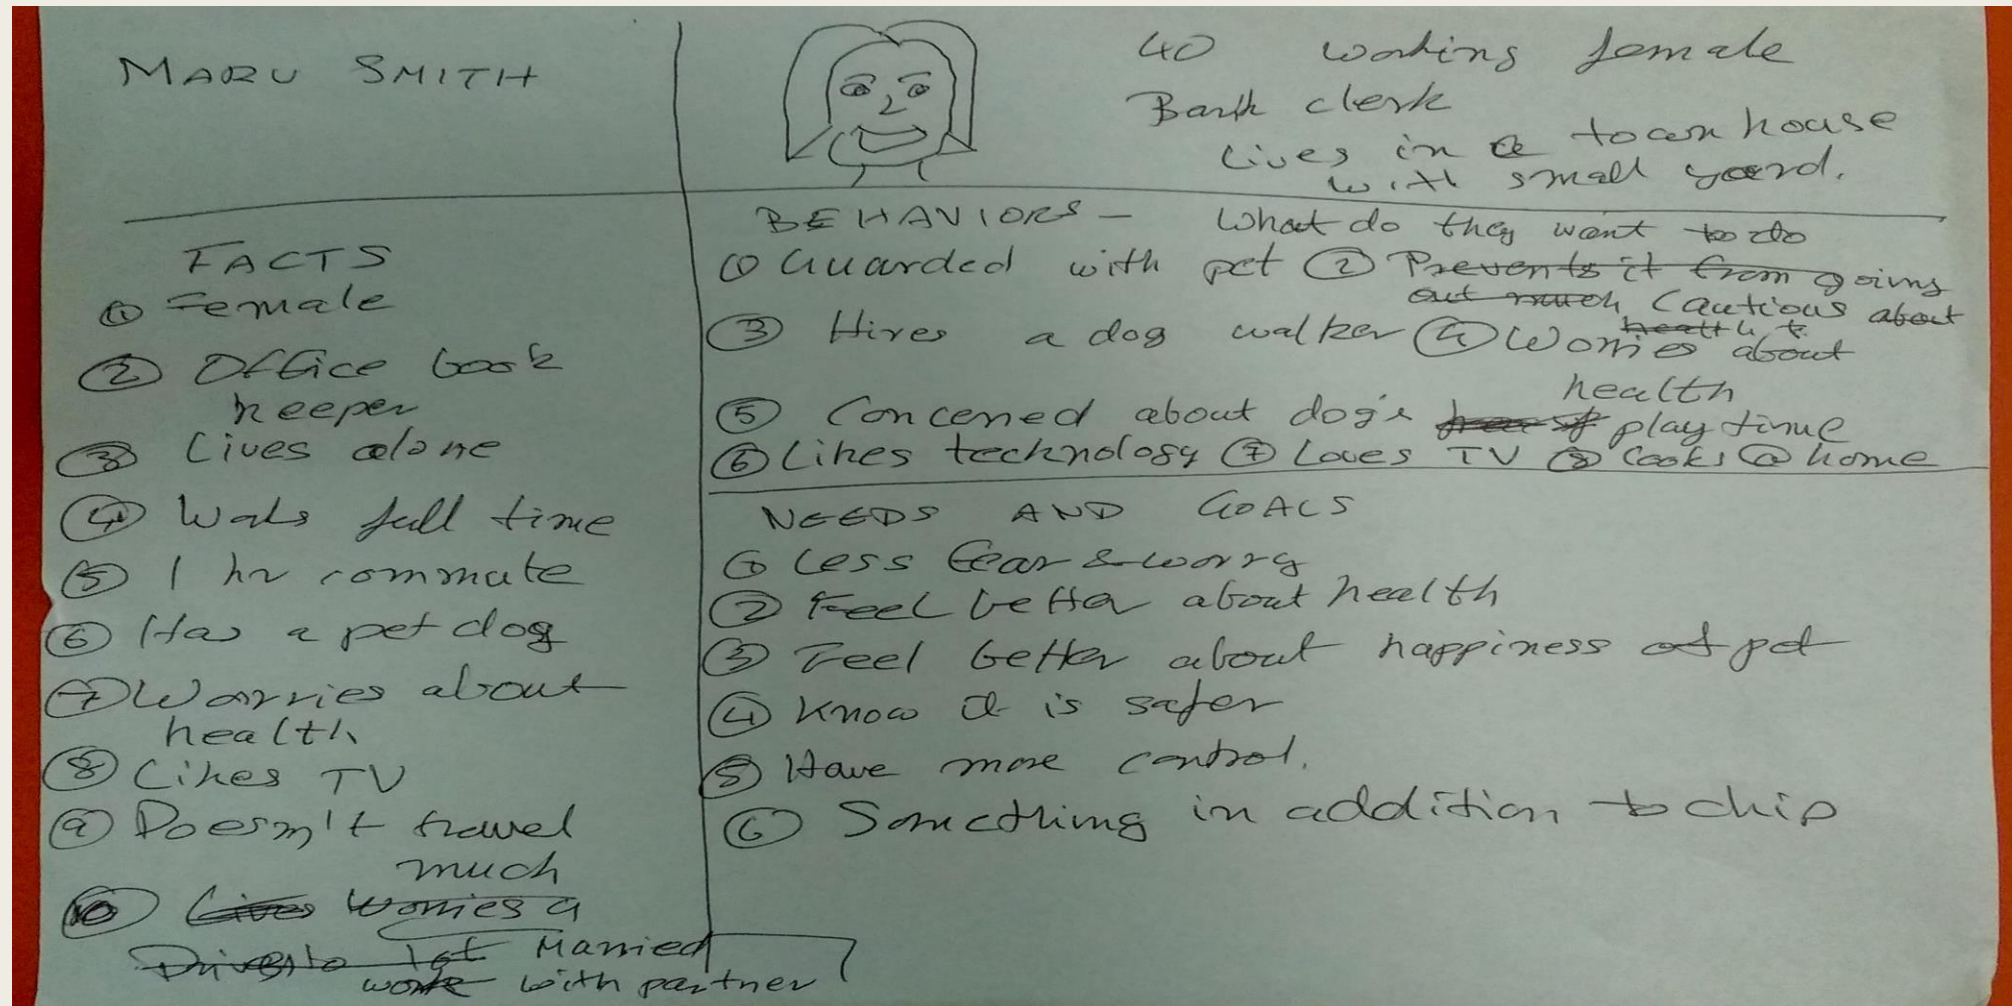 MARU SMITH
40 working female
Bank clerk
Lives in a town house
with small yard.
FACTS
① Female
② Office book
keeper
③ Lives alone
④ Works full time
⑤ 1 hr commute
⑥ Has a pet dog
⑦ Worries about
health
⑧ Likes TV
⑨ Doesn't travel
much
⑩ Lives Worries a
Drives to lot Married
work with partner
BEHAVIORS - What do they want to do
① Guarded with pet ② Prevents it from going
out much Cautious about
health
③ Hires a dog walker ④ Worries about
health
⑤ Concerned about dog's playtime
⑥ Likes technology ⑦ Loves TV ⑧ Cooks @ home
NEEDS AND GOALS
① Less fear & worry
② Feel better about health
③ Feel better about happiness of pet
④ Know it is safer
⑤ Have more control.
⑥ Something in addition to chip